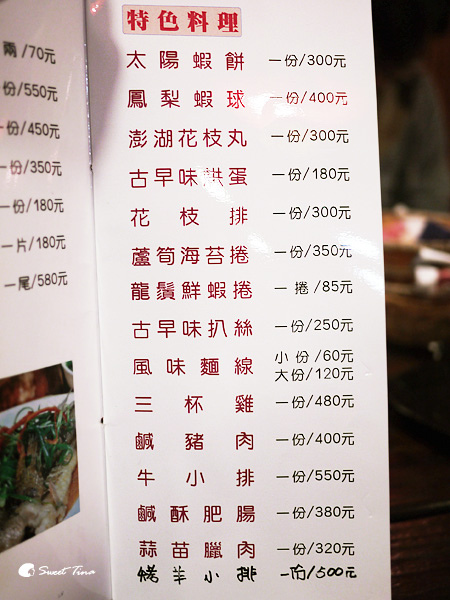 兩/70元
份/550元
一份/450元
一份/350元
一份/180元
一片/180元
一尾/580元
特色料理
太陽蝦餅 一份/300元
鳳梨蝦球 一份/400元
澎湖花枝丸 一份/300元
古早味烘蛋 一份/180元
花枝排 一份/300元
蘆筍海苔捲 一份/350元
龍鬚鮮蝦捲 一捲/85元
古早味扒絲 一份/250元
風味麵線 小份/60元
大份/120元
三杯雞 一份/480元
鹹豬肉 一份/400元
牛小排 一份/550元
鹹酥肥腸 一份/380元
蒜苗臘肉 一份/320元
烤羊小排 一份/500元
Sweet Tina